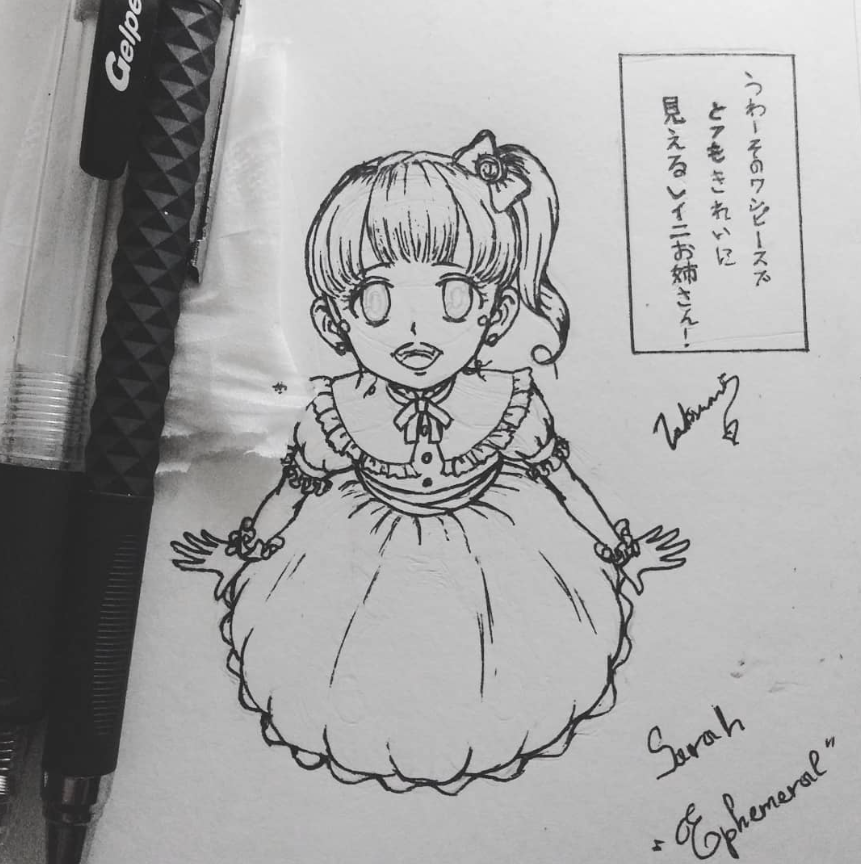 Gelpe
うわーそのワンピースズ
とてもきれいに
見えるレイニお姉さん!
Sarah
"Ephemeral"